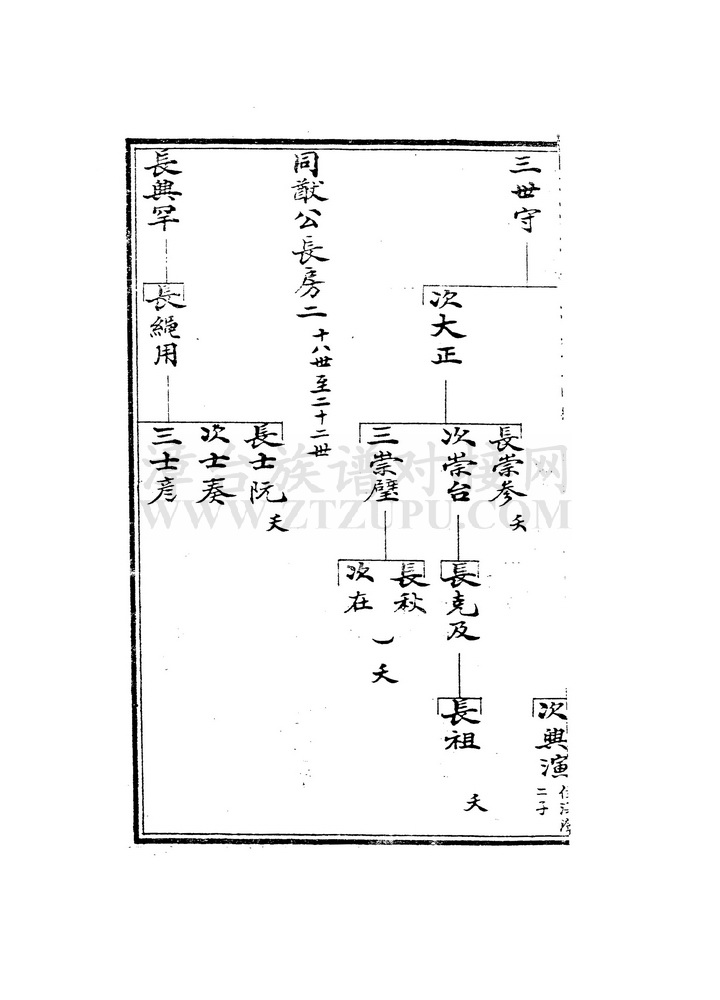 三世守
次大正
長崇参
夭
次崇台
三崇璧
長克及
長秋
次在
夭
長祖
夭
次興演
二子
同猷公長房二 十八世至二十二世
長典罕
長繩用
長士阮
夭
次士奏
三士彦
漳台族谱对接网
WWW.ZTZUPU.COM